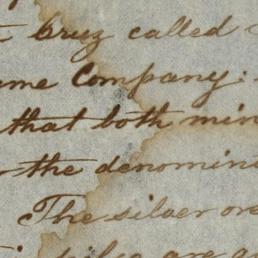 Cruz called
me Company:
that both min
the denomina
The silver ore